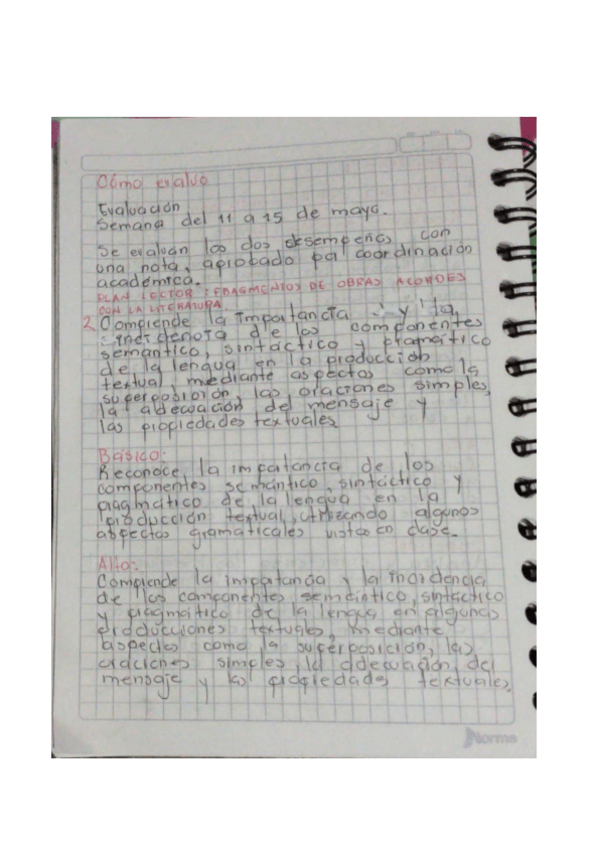 Cómo evaluo
Evaluación
Semana del 11 a 15 de mayo.
Se evaluan los dos desempeños con
una nota, aprobado por coordinación
académica.
PLAN LECTOR: FRAGMENTOS DE OBRAS ACORDES
CON LA LITERATURA.
2. Comprende la importancia y la
incidencia de los componentes
semántico, sintáctico y pragmático
de la lengua en la producción
textual, mediante aspectos como la
superposición, las oraciones simples,
la adecuación del mensaje y
las propiedades textuales
Básico:
Reconoce la importancia de los
componentes semántico, sintáctico y
pragmático de la lengua en la
producción textual, utilizando algunos
aspectos gramaticales vistos en clase.
Alto:
Comprende la importancia y la incidencia
de los componentes, semántico, sintáctico
y pragmático de la lengua, en algunas
producciones textuales, mediante
aspectos como la superposición, las
oraciones simples, la adecuación del
mensaje y las propiedades textuales.
Norma